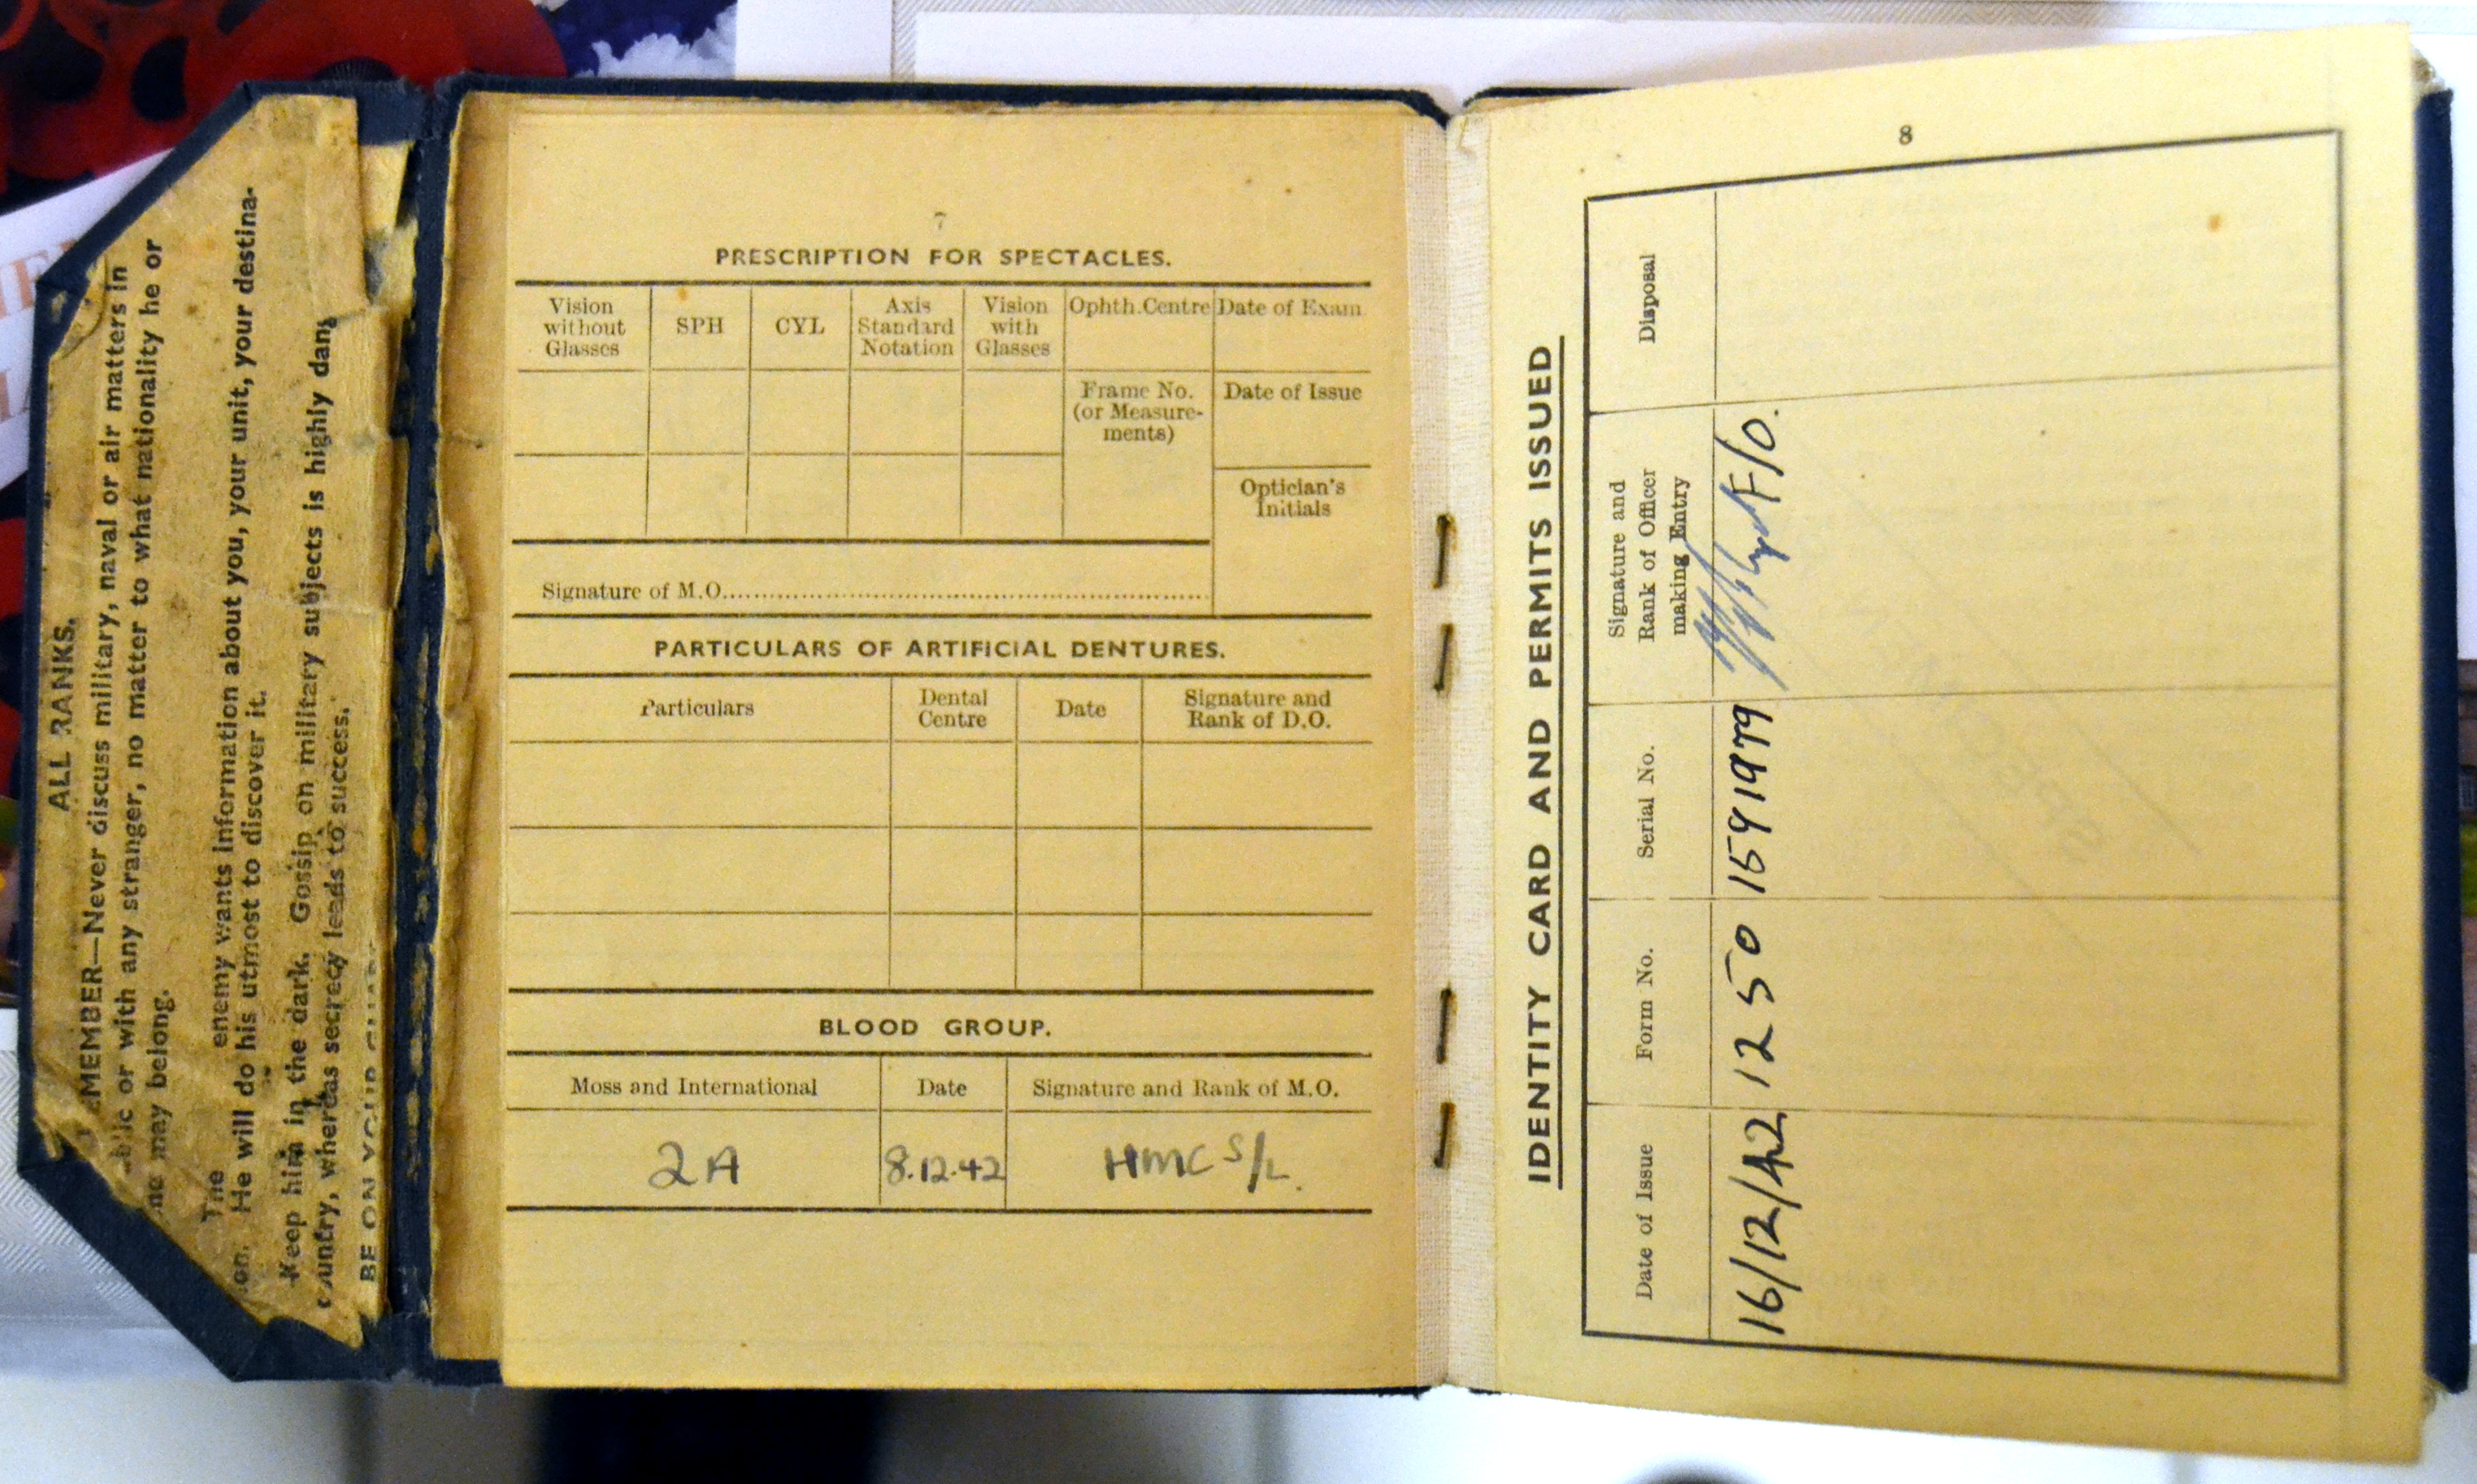 ALL RANKS.
MEMBER—Never discuss military, naval or air matters in
or with any stranger, no matter to what nationality he or
may belong.
The enemy wants information about you, your unit, your destina-
He will do his utmost to discover it.
Keep him in the dark. Gossip on military subjects is highly
country, whereas secrecy leads to success.
BE ON YOUR
7
PRESCRIPTION FOR SPECTACLES.
Vision without Glasses SPH CYL Axis Standard Notation Vision with Glasses Ophth. Centre Date of Exam
Frame No. (or Measure-ments) Date of Issue
Optician's Initials
Signature of M.O.
PARTICULARS OF ARTIFICIAL DENTURES.
Particulars Dental Centre Date Signature and Rank of D.O.
BLOOD GROUP.
Moss and International Date Signature and Rank of M.O.
2A 8.12.42 HMC S/L.
8
IDENTITY CARD AND PERMITS ISSUED
Date of Issue Form No. Serial No. Signature and Rank of Officer making Entry Disposal
16/12/42 1250 F/O.